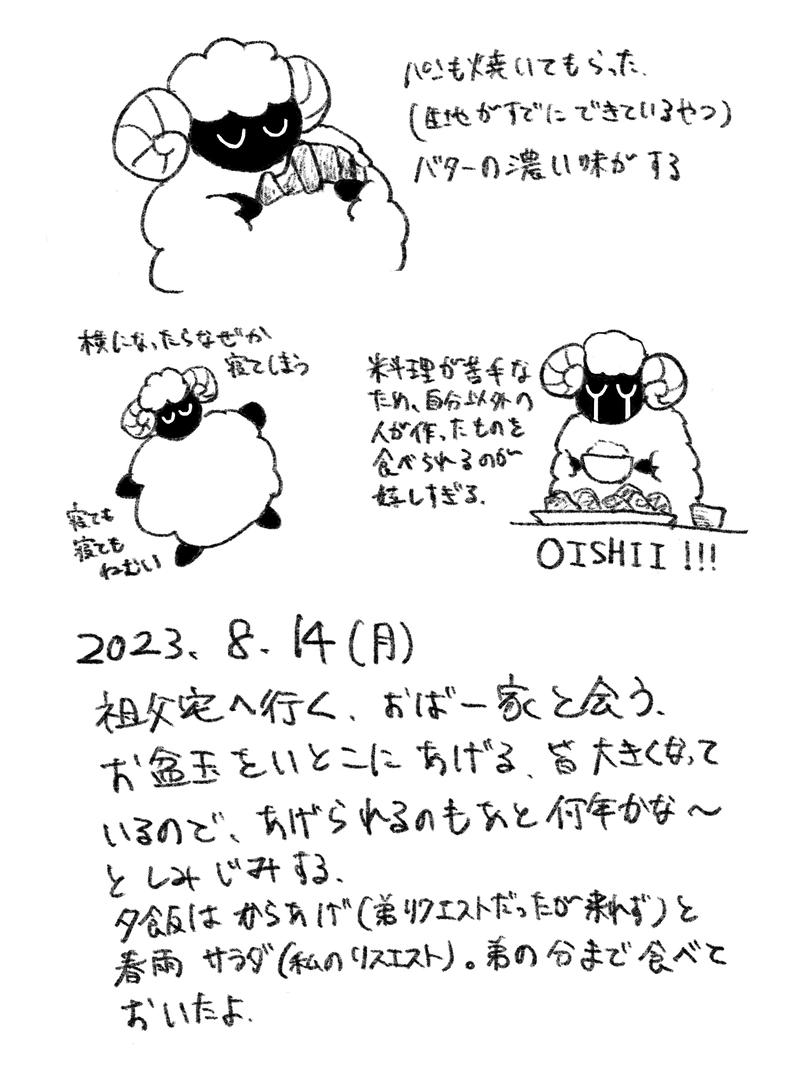 パンも焼いてもらった.
(生地がすでにできているやつ)
バターの濃い味がする
横になったらなぜか
寝てしまう
寝ても
寝ても
ねむい
料理が苦手な
ため、自分以外の
人が作ったものを
食べられるのが
嬉しすぎる.
OISHII!!!
2023. 8. 14(月)
祖父宅へ行く. おば一家と会う.
お盆玉をいとこにあげる. 皆大きくなって
いるので、あげられるのもあと何年かな〜
としみじみする.
夕飯はからあげ(弟リクエストだったが来れず)と
春雨サラダ(私のリスエスト)。弟の分まで食べて
おいたよ.